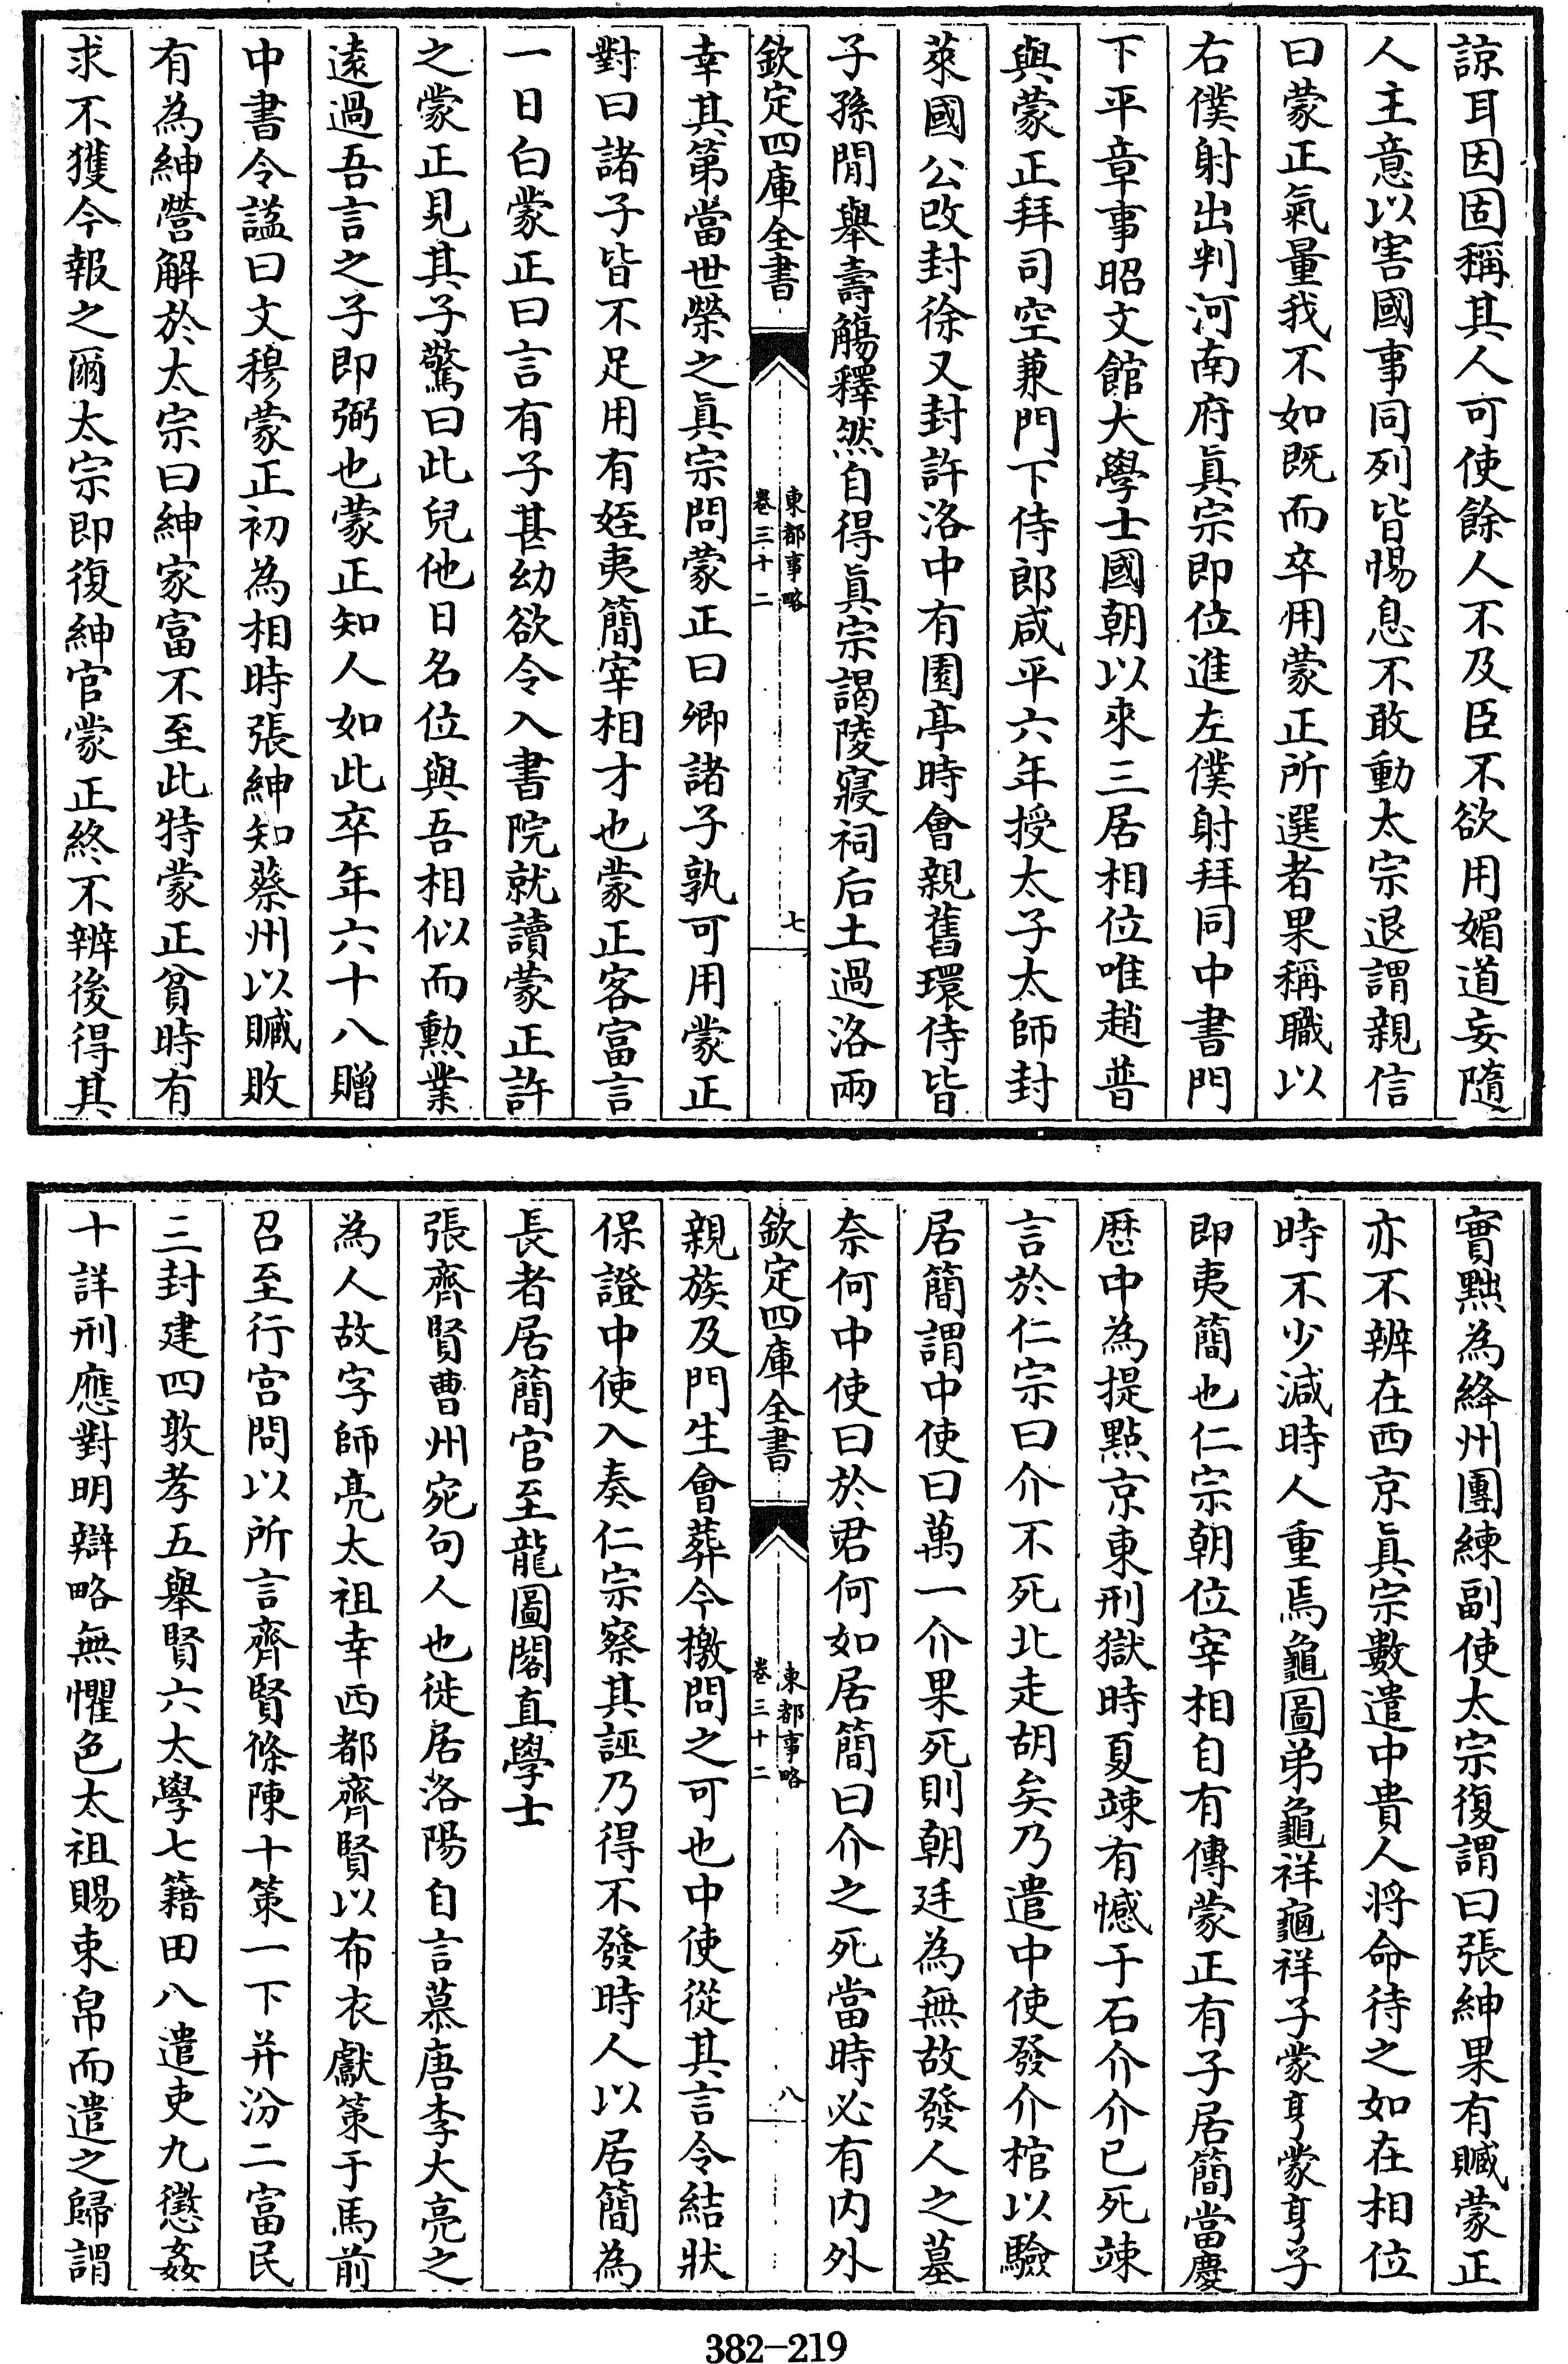 諒耳因固稱其人可使餘人不及臣不欲用媚道妄隨
人主意以害國事同列皆惕息不敢動太宗退謂親信
曰蒙正氣量我不如既而卒用蒙正所選者果稱職以
右僕射出判河南府眞宗即位進左僕射拜同中書門
下平章事昭文館大學士國朝以來三居相位唯趙普
與蒙正拜司空兼門下侍郎咸平六年授太子太師封
萊國公改封徐又封許洛中有園亭時會親舊環侍皆
子孫閒舉壽觴釋然自得眞宗謁陵寢祠后土過洛兩
欽定四庫全書
東都事略
卷三十二
七
幸其第當世榮之眞宗問蒙正曰卿諸子孰可用蒙正
對曰諸子皆不足用有姪夷簡宰相才也蒙正客富言
一日白蒙正曰言有子甚幼欲令入書院就讀蒙正許
之蒙正見其子驚曰此兒他日名位與吾相似而勲業
遠過吾言之子即弼也蒙正知人如此卒年六十八贈
中書令謚曰文穆蒙正初為相時張紳知蔡州以贓敗
有為紳營解於太宗曰紳家富不至此特蒙正貧時有
求不獲今報之爾太宗即復紳官蒙正終不辨後得其
實黜為絳州團練副使太宗復謂曰張紳果有贓蒙正
亦不辨在西京眞宗數遣中貴人将命待之如在相位
時不少減時人重焉龜圖弟龜祥龜祥子蒙亨蒙亨子
即夷簡也仁宗朝位宰相自有傳蒙正有子居簡當慶
歴中為提點京東刑獄時夏竦有憾于石介介已死竦
言於仁宗曰介不死北走胡矣乃遣中使發介棺以驗
居簡謂中使曰萬一介果死則朝廷為無故發人之墓
奈何中使曰於君何如居簡曰介之死當時必有内外
欽定四庫全書
東都事略
卷三十二
八
親族及門生會葬今檄問之可也中使從其言令結狀
保證中使入奏仁宗察其誣乃得不發時人以居簡為
長者居簡官至龍圖閣直學士
張齊賢曹州宛句人也徙居洛陽自言慕唐李大亮之
為人故字師亮太祖幸西都齊賢以布衣獻策于馬前
召至行宫問以所言齊賢條陳十策一下并汾二富民
三封建四敦孝五舉賢六太學七籍田八遣吏九懲姦
十詳刑應對明辯略無懼色太祖賜束帛而遣之歸謂
382-219